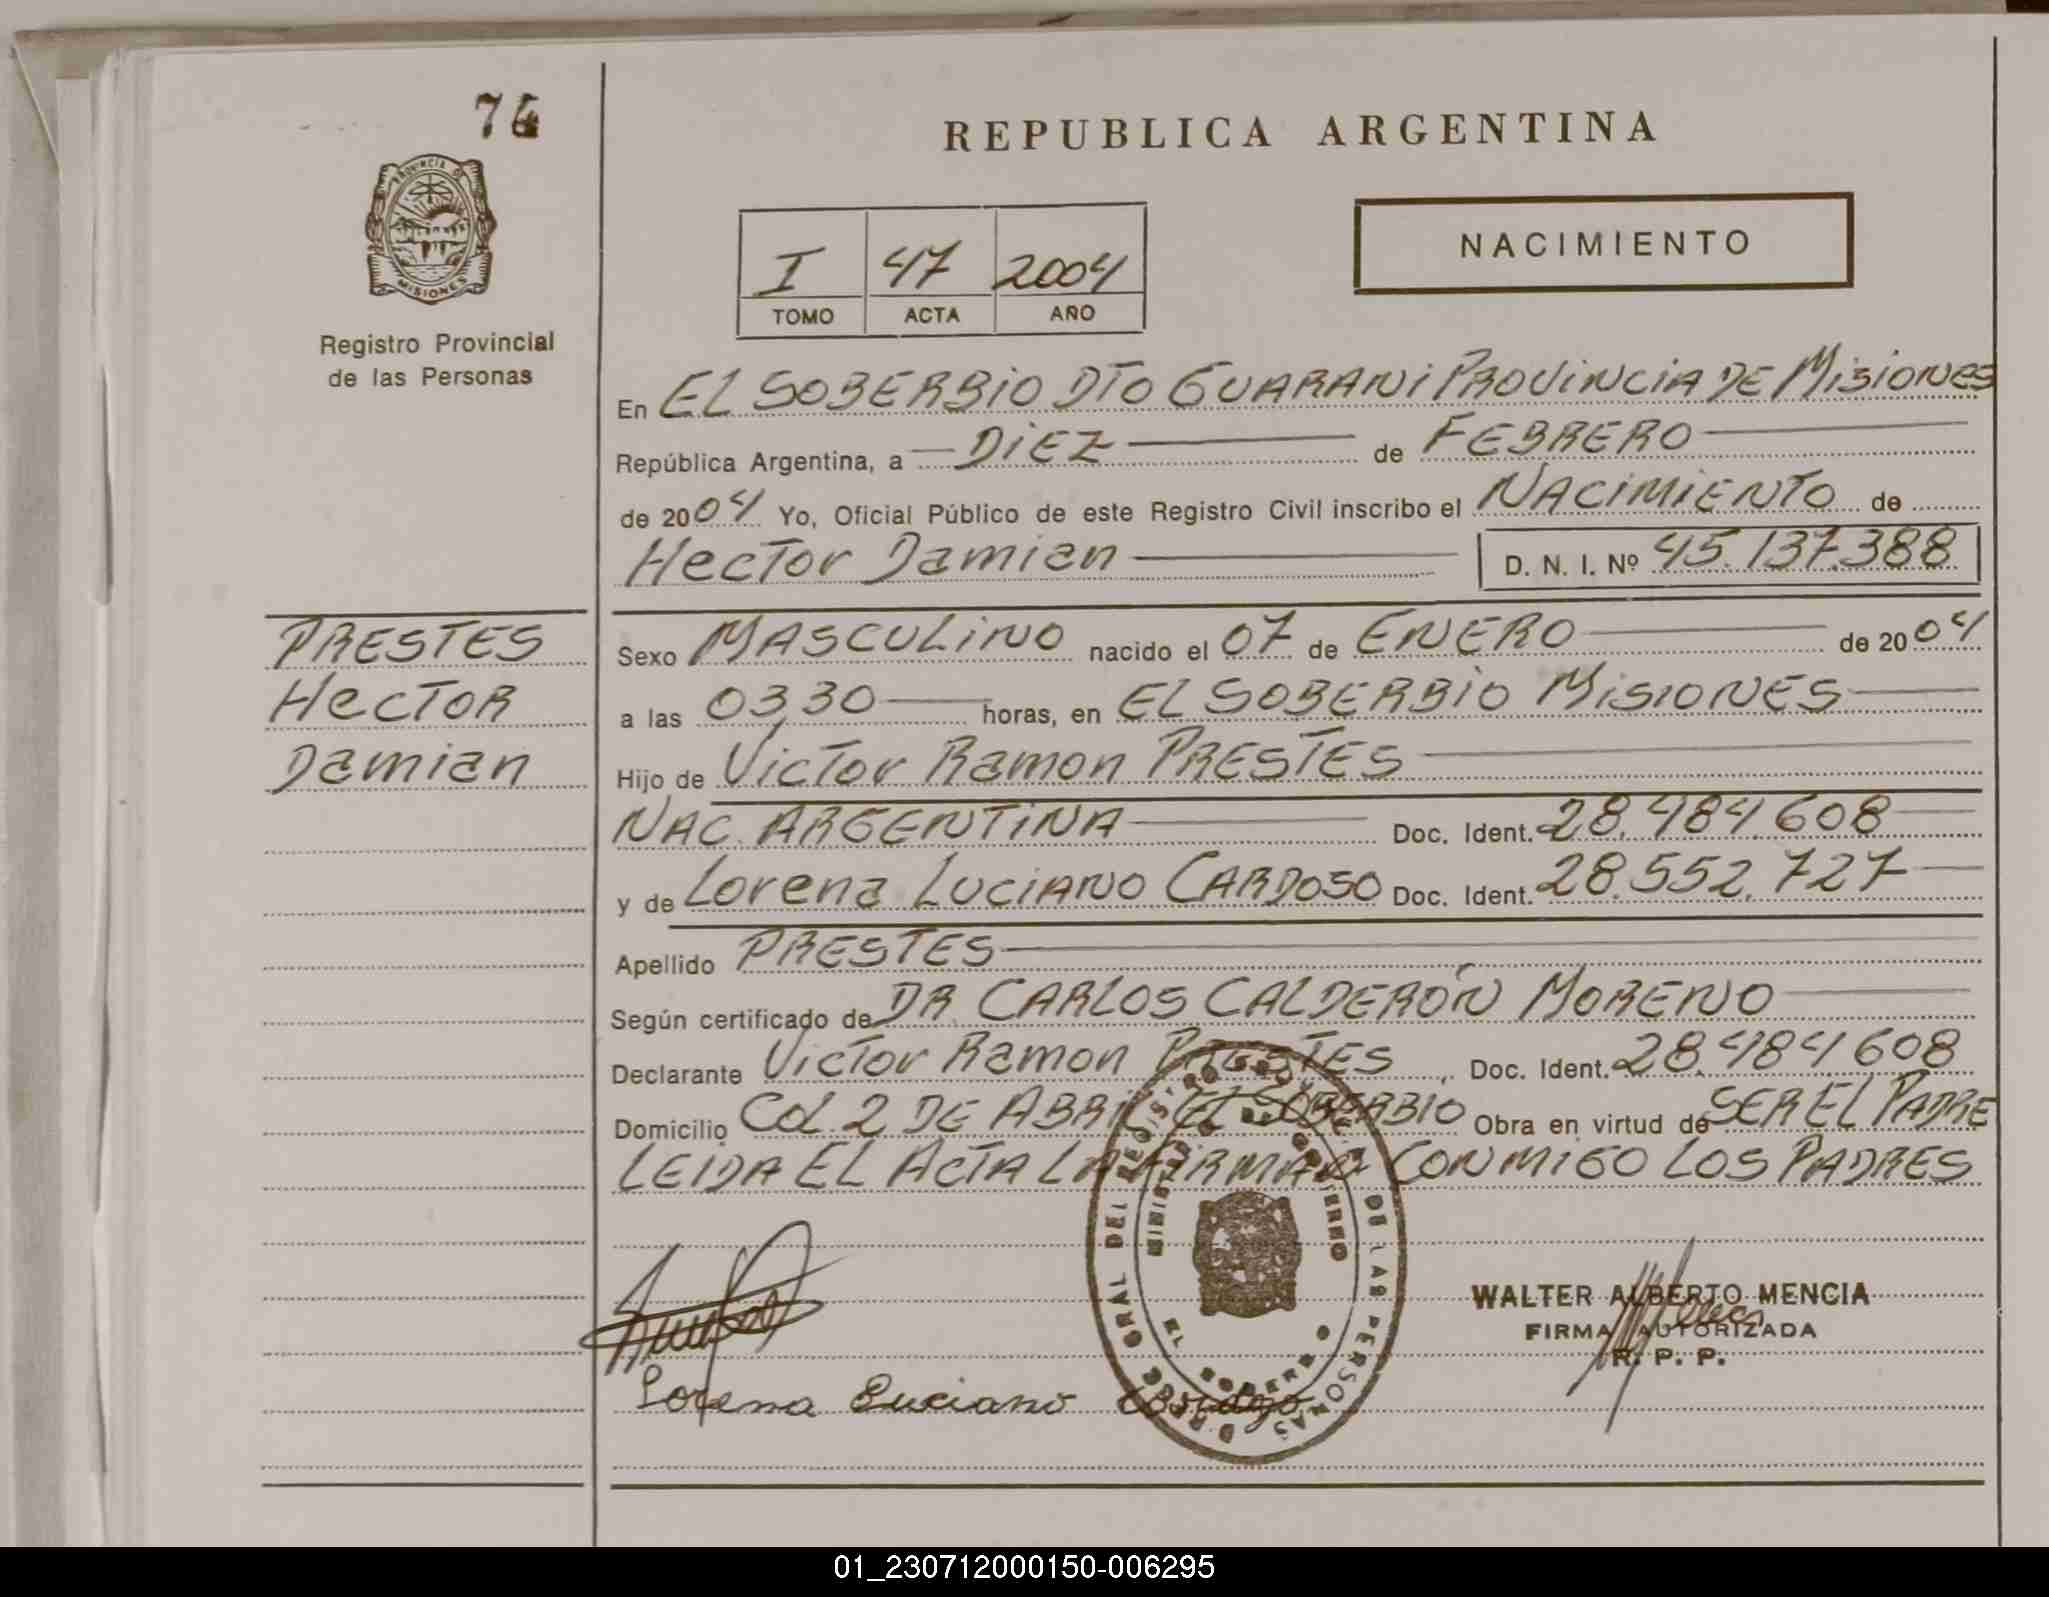 74
PROVINCIA DE
MISIONES
Registro Provincial
de las Personas
REPUBLICA ARGENTINA
I 47 2004
TOMO ACTA AÑO
NACIMIENTO
En EL SOBERBIO DTO GUARANI PROVINCIA DE MISIONES
República Argentina, a DIEZ de FEBRERO
de 2004 Yo, Oficial Público de este Registro Civil inscribo el NACIMIENTO de
Hector Damian D. N. I. Nº 45.137.388
PRESTES
HECTOR
Damian
Sexo MASCULINO nacido el 07 de ENERO de 2004
a las 03,30 horas, en EL SOBERBIO MISIONES
Hijo de Victor Ramon PRESTES
NAC. ARGENTINA Doc. Ident. 28.484.608
y de Lorena LUCIANO CARDOSO Doc. Ident. 28.552.727
Apellido PRESTES
Según certificado de DR CARLOS CALDERÓN MORENO
Declarante Victor Ramon PRESTES, Doc. Ident. 28.484.608
Domicilio COL 2 DE ABRIL EL SOBERBIO Obra en virtud de SER EL PADRE
LEIDA EL ACTA LA FIRMAN CONMIGO LOS PADRES
DEL REGISTRO DE LAS PERSONAS
MINISTERIO DE GOBIERNO
EL SOBERBIO
WALTER ALBERTO MENCIA
FIRMA AUTORIZADA
R. P. P.
Lorena Luciano Cardozo
01_230712000150-006295